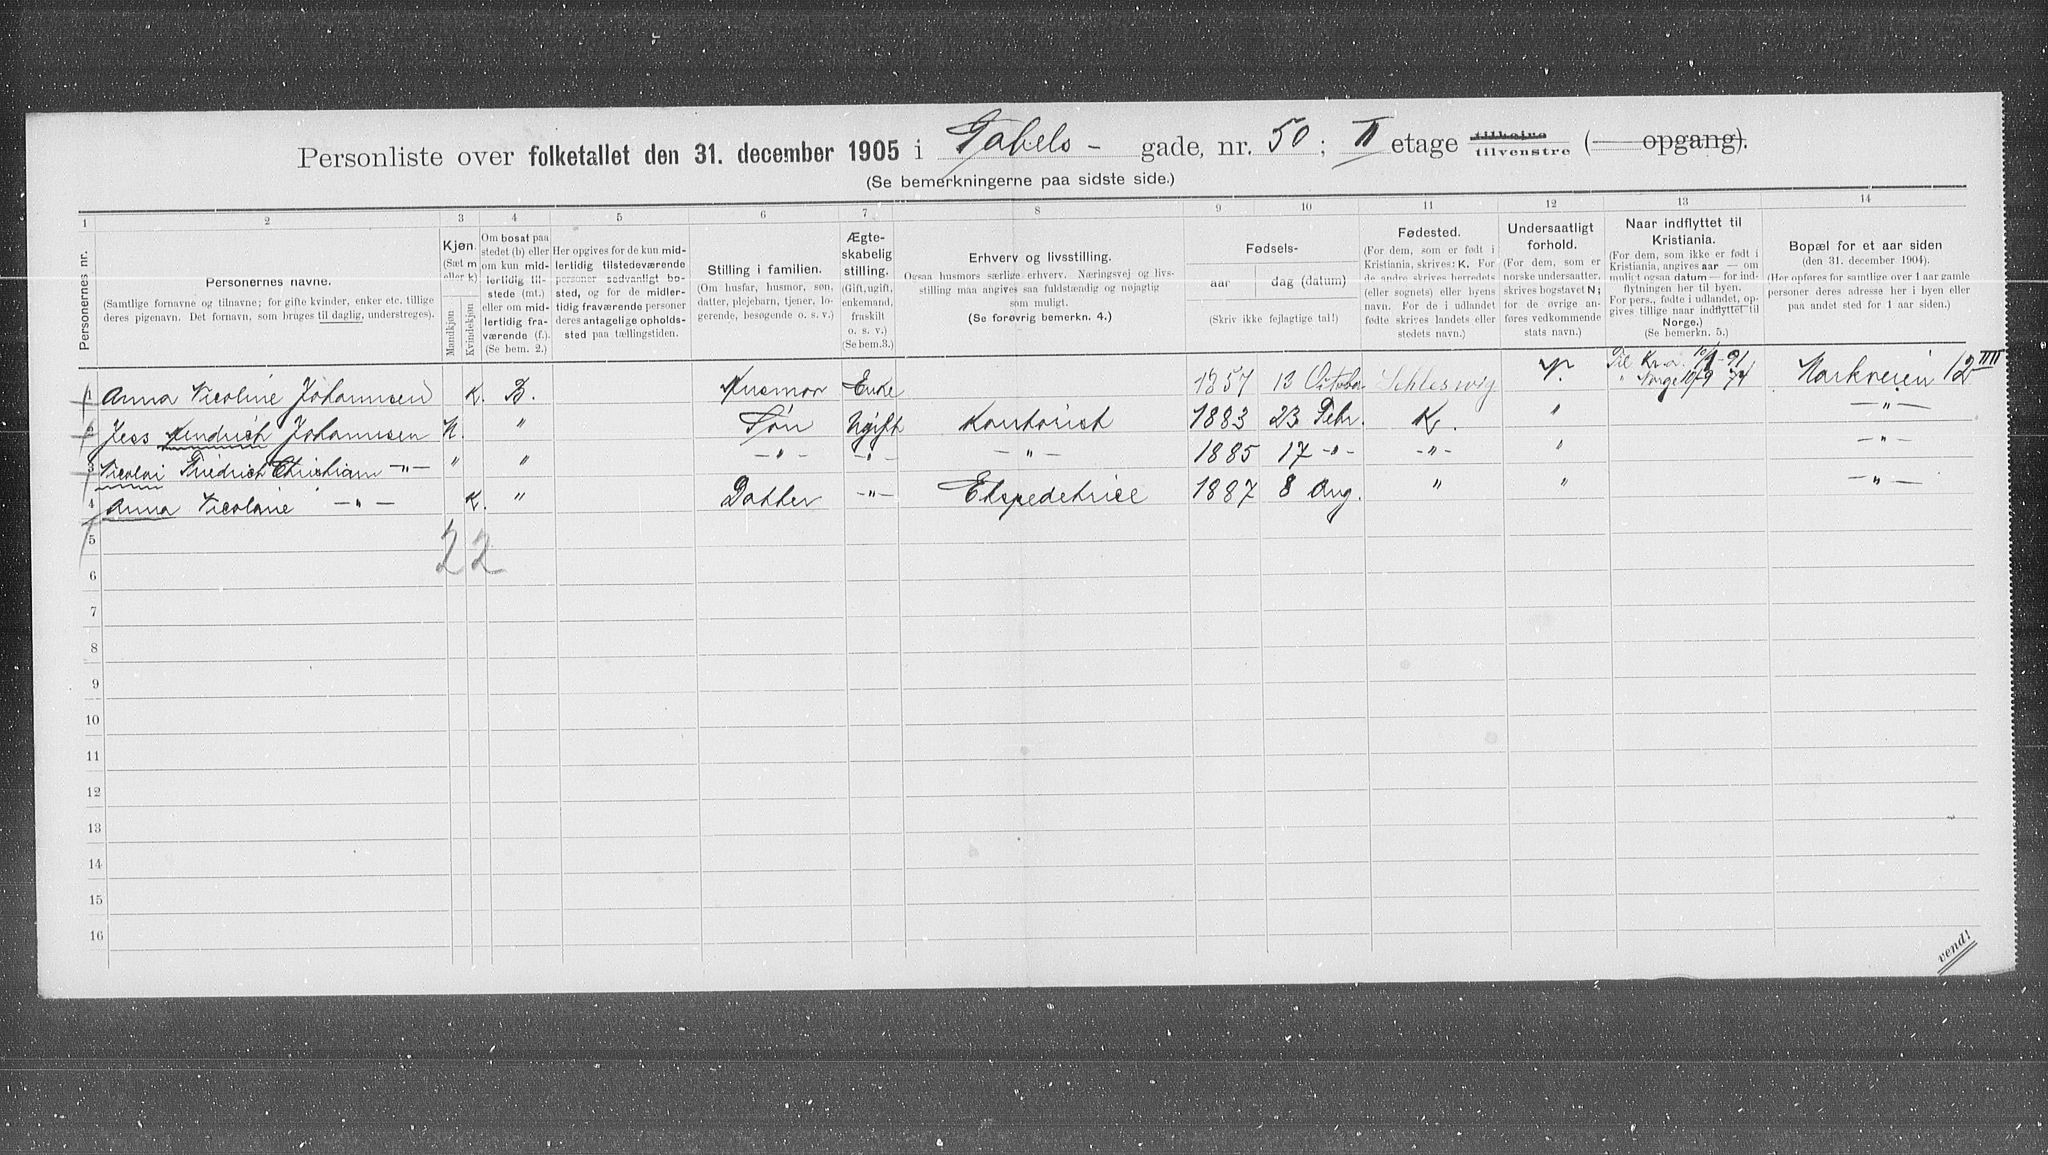 Personliste over folketallet den 31. december 1905 i Gabels - gade, nr. 50; II etage tilhøire tilvenstre (— opgang).
(Se bemerkningerne paa sidste side.)
1 2 3 4 5 6 7 8 9 10 11 12 13 14
Personernes nr.
Personernes navne.
(Samtlige fornavne og tilnavne; for gifte kvinder, enker etc. tillige deres pigenavn. Det fornavn, som bruges til daglig, understreges).
Kjøn.
(Sæt m eller k)
Mandkjøn
Kvindekjøn
Om bosat paa stedet (b) eller om kun midlertidig tilstede (mt.) eller om midlertidig fraværende (f.). (Se bem. 2.)
Her opgives for de kun midlertidig tilstedeværende personer sedvanligt bosted, og for de midlertidig fraværende personer deres antagelige opholdssted paa tællingstiden.
Stilling i familien.
(Om husfar, husmor, søn, datter, plejebarn, tjener, logerende, besøgende o. s. v.)
Ægteskabelig stilling.
(Gift, ugift, enkemand, fraskilt o. s. v.)
(Se bem. 3.)
Erhverv og livsstilling.
Ogsaa husmors særlige erhverv. Næringsvej og livsstilling maa angives saa fuldstændig og nøjagtig som muligt.
(Se forøvrig bemerkn. 4.)
Fødsels-
aar
dag (datum)
(Skriv ikke fejlagtige tal!)
Fødested.
(For dem, som er født i Kristiania, skrives: K. For de andre skrives herredets (eller sognets) eller byens navn. For de i udlandet fødte skrives landets eller stedets navn.)
Undersaatligt forhold.
(For dem, som er norske undersaatter, skrives bogstavet N; for de øvrige anføres vedkommende stats navn.)
Naar indflyttet til Kristiania.
(For dem, som ikke er født i Kristiania, angives aar — om muligt ogsaa datum — for indflytningen her til byen. For pers., fødte i udlandet, opgives tillige naar indflyttet til Norge.)
(Se bemerkn. 5.)
Bopæl for et aar siden
(den 31. december 1904).
(Her opføres for samtlige over 1 aar gamle personer deres adresse her i byen eller paa andet sted for 1 aar siden.)
1 Anna Nicoline Johannsen K. B. Husmor Enke 1857 13 October Schleswig N. Til Kr.a. Norge Markveien 12 IIII
2 Jess Hendrich Johannsen M. " Søn Ugift Kontorist 1883 23 Febr. K. " —"—
3 Nicolai Friedrich Christian —"— " " —"— —"— —"— 1885 17 —"— —"— " —"—
4 Anna Nicoline —"— K. " Datter —"— Ekspedetrice 1887 8 Aug. " " —"—
2 2
5
6
7
8
9
10
11
12
13
14
15
16
vend!